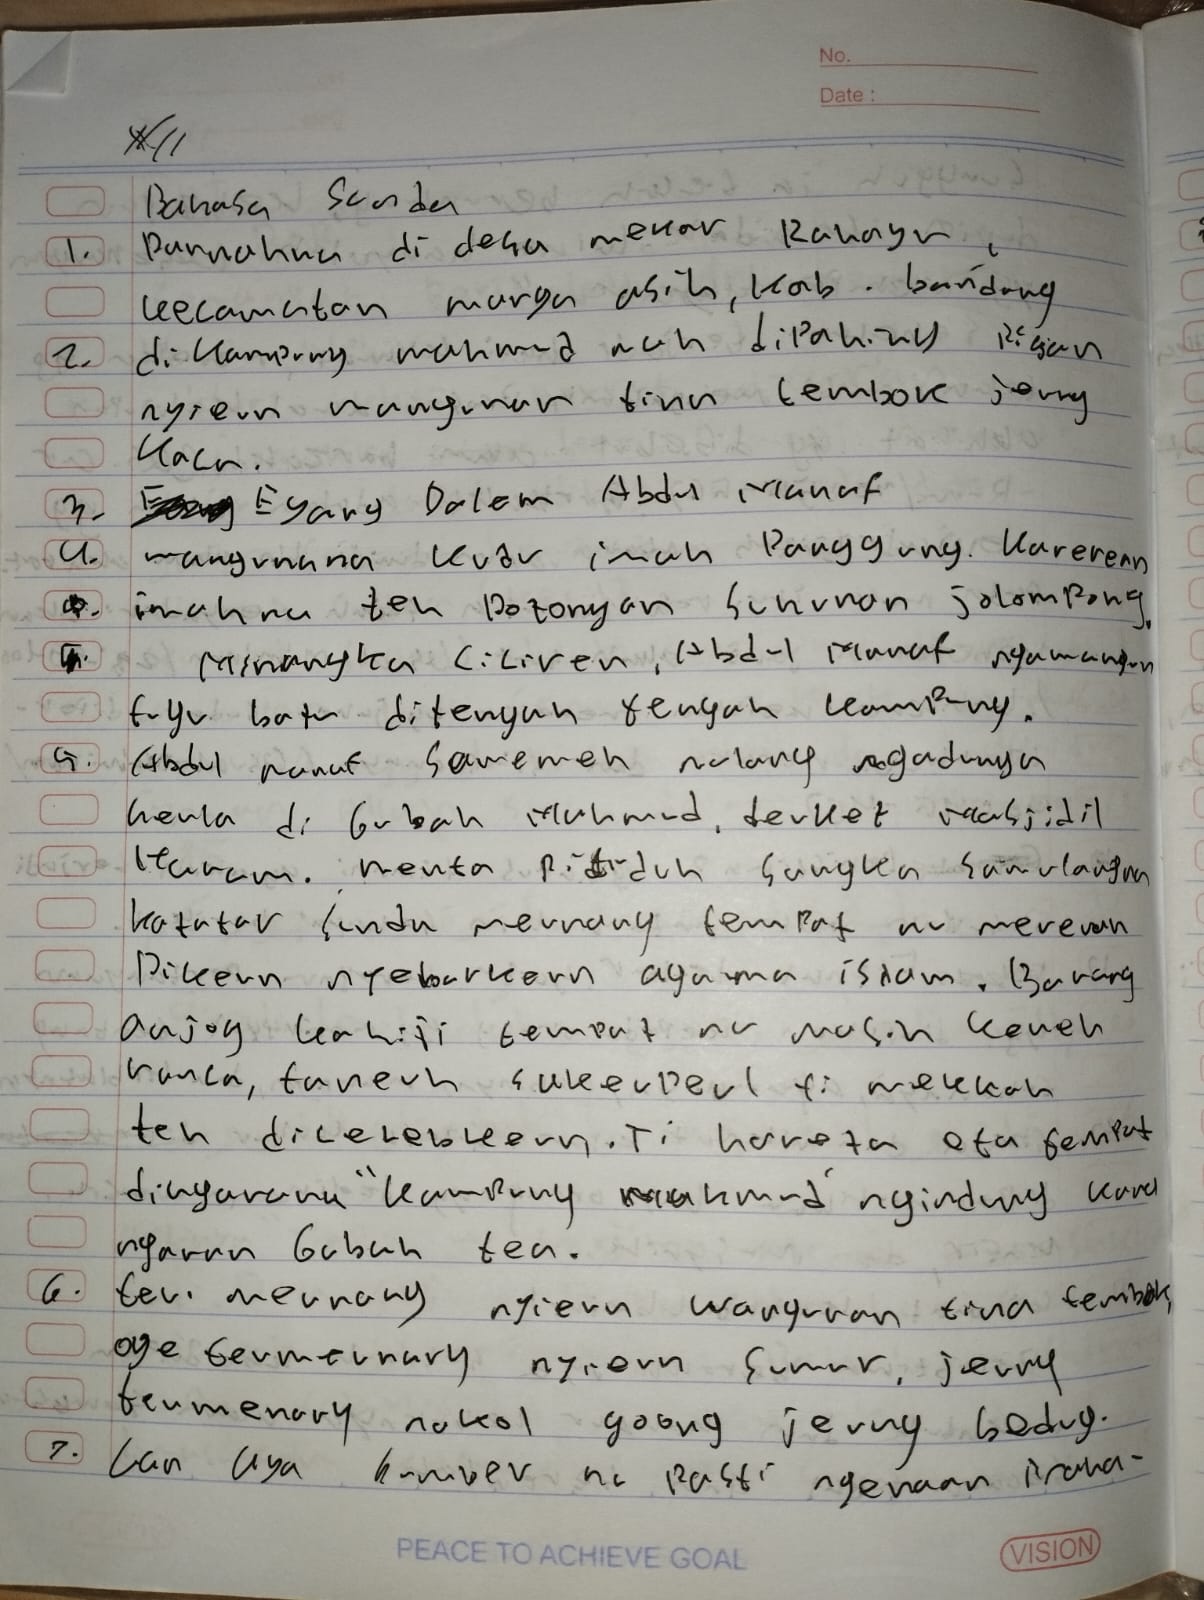 No.
Date :
Bahasa Sunda
1. Parnahna di desa mekar Rahayu,
kecamatan marga asih, kab. bandung
2. di kampung mahmud mah dipahing pisan
nyieun wangunan tina tembok jeung
kaca.
3. Eyang Dalem Abdul Manaf
4. wangunana kudu imah Panggung. Kareren
imahna teh potongan suhunan jolompong.
Minangka ciciren, Abdul Manaf ngamangun
tugu batu ditengah tengah kampung.
5. Abdul Manaf samemeh mulang ngadunga
heula di Gubah Mahmud, deuket Masjidil
Haram. menta pituduh sangka
katatar sunda meunang tempat nu mereun
Pikeun nyebarkeun agama islam. Barang
anjog kahiji tempat nu masih keneh
ranca, taneuh sakeupeul ti mekkah
teh dicecebkeun. Ti harita eta tempat
dingaranan "kampung mahmud" ngindung kana
ngaran Gubah tea.
6. teu meunang nyieun wangunan tina tembok,
oge teumeunang nyieun sumur, jeung
teumenang nakol goong jeung bedug.
7. Can aya sumber nu Pasti ngenaan Praha-
PEACE TO ACHIEVE GOAL
VISION